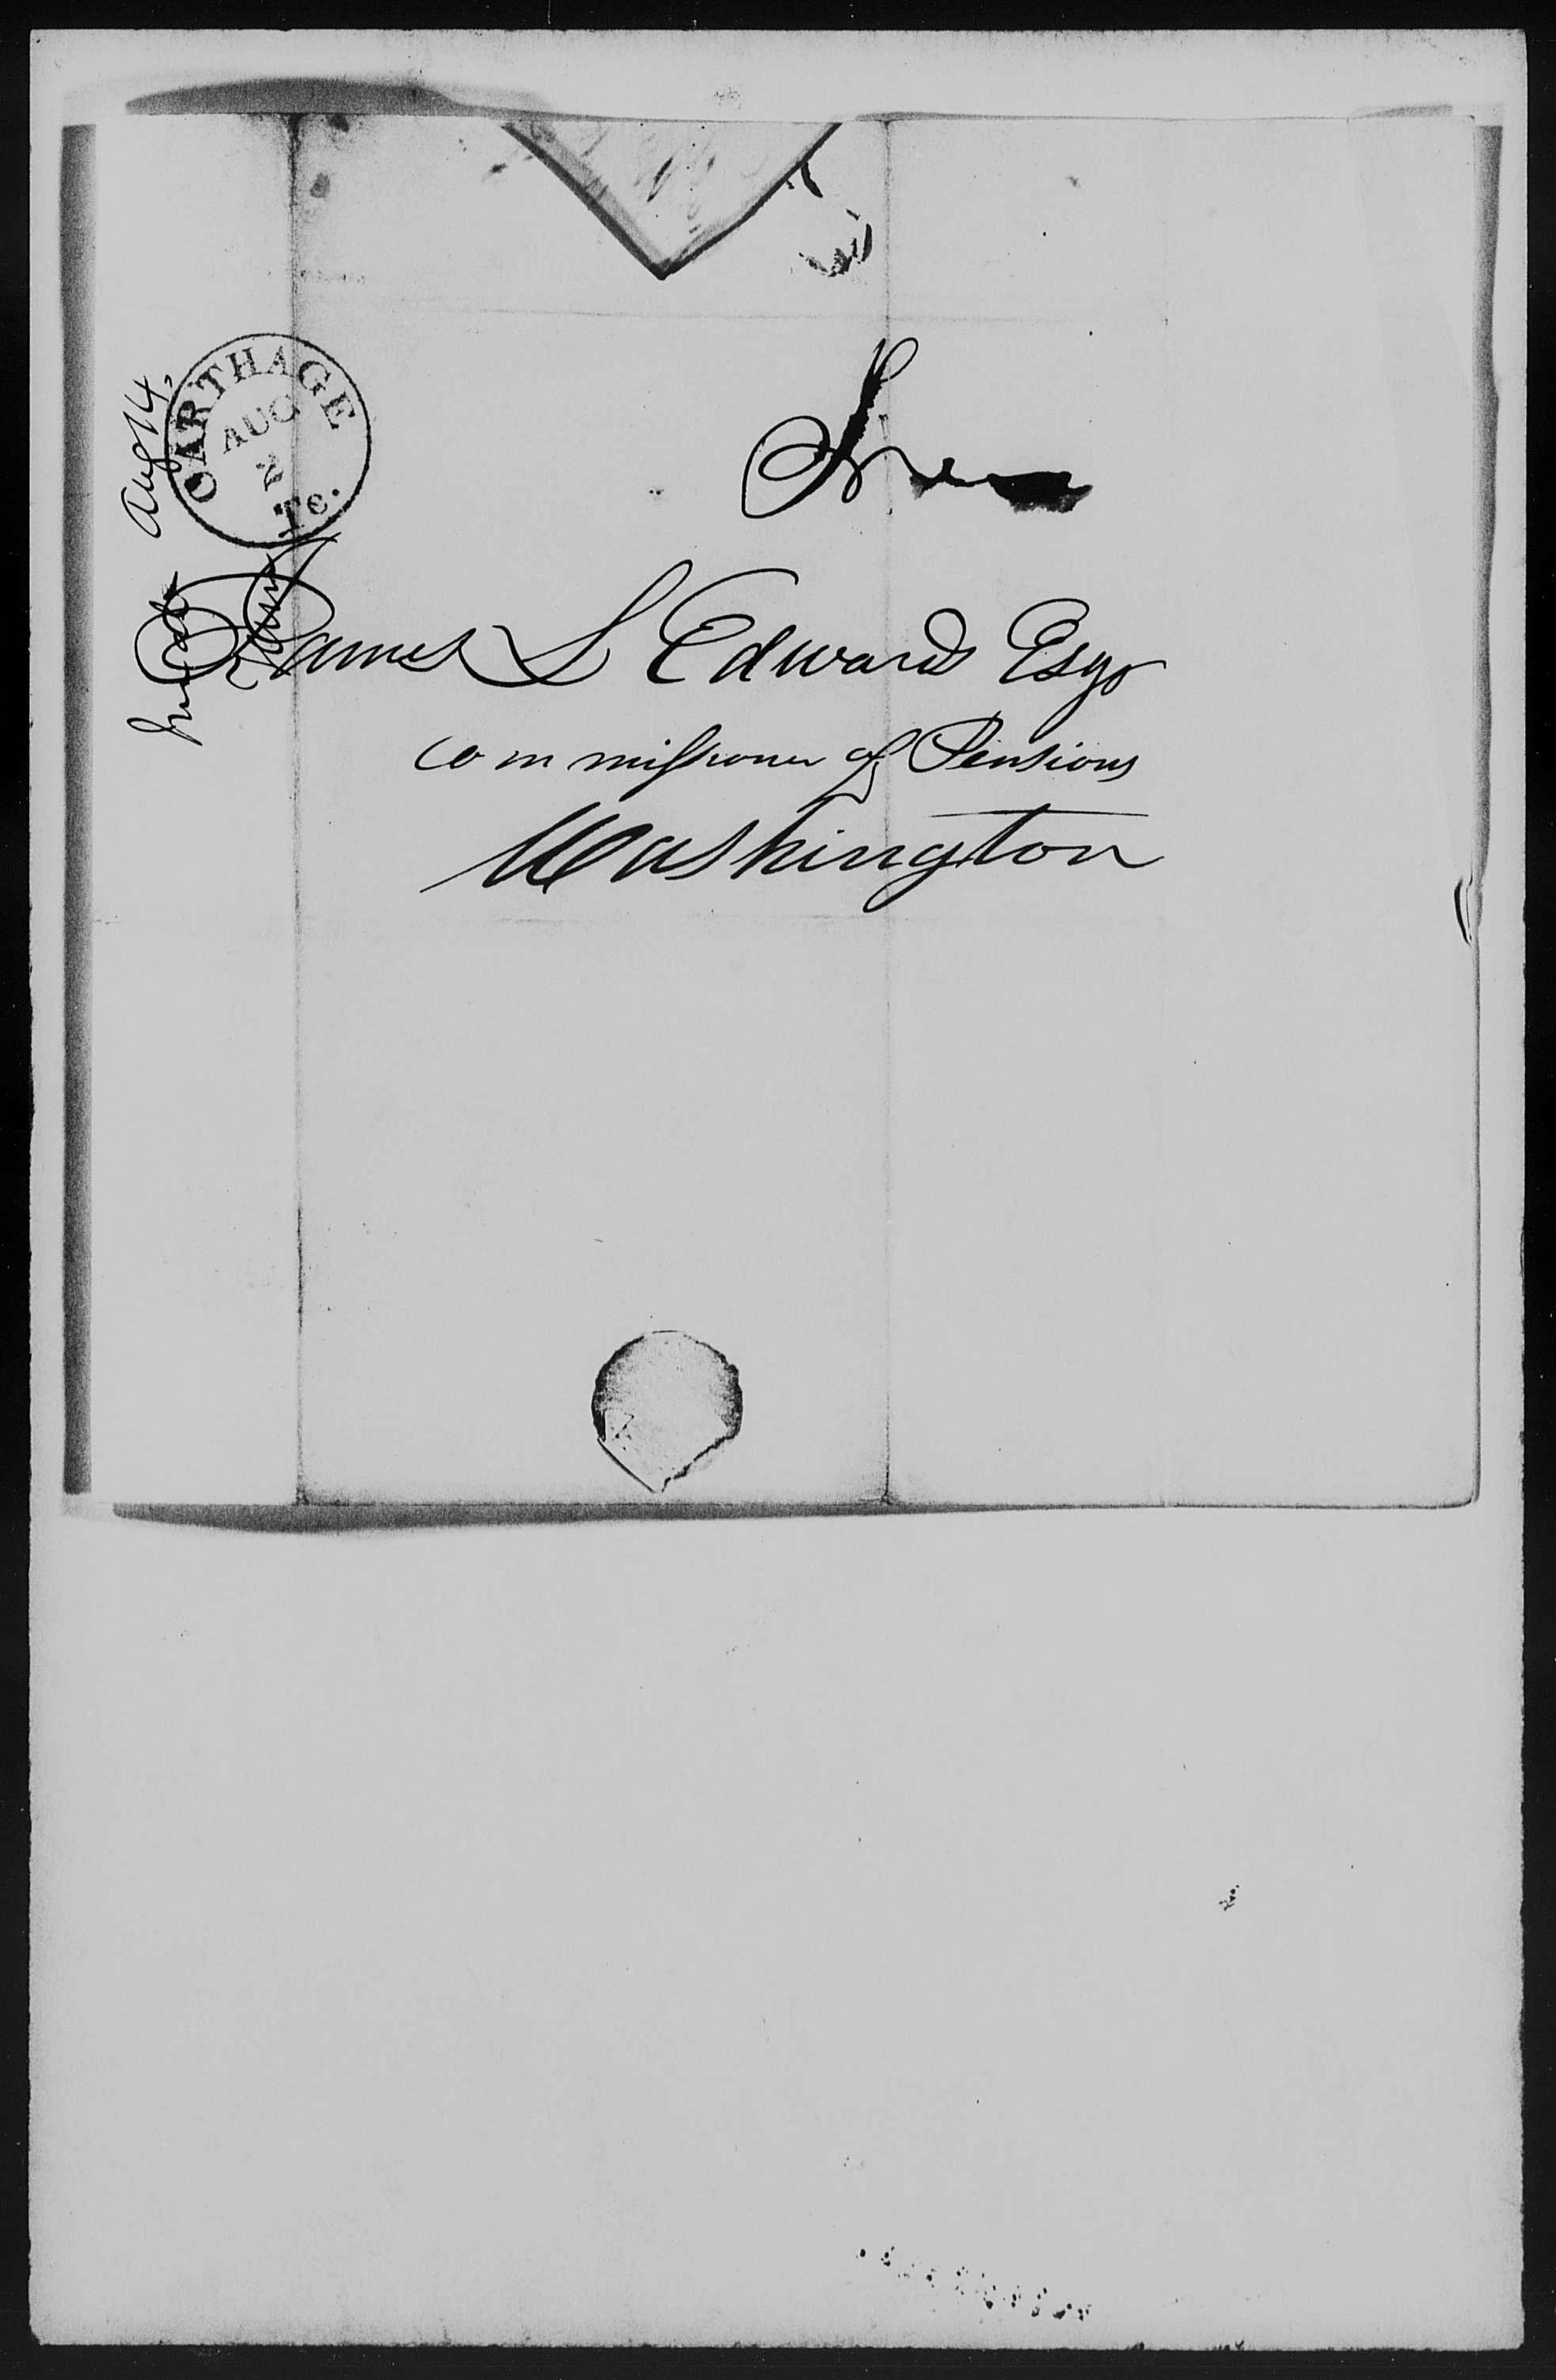 Aug 14,
CARTHAGE
AUG
2
Te.
Free
James L Edwards Esqr
commissioner of Pensions
Washington